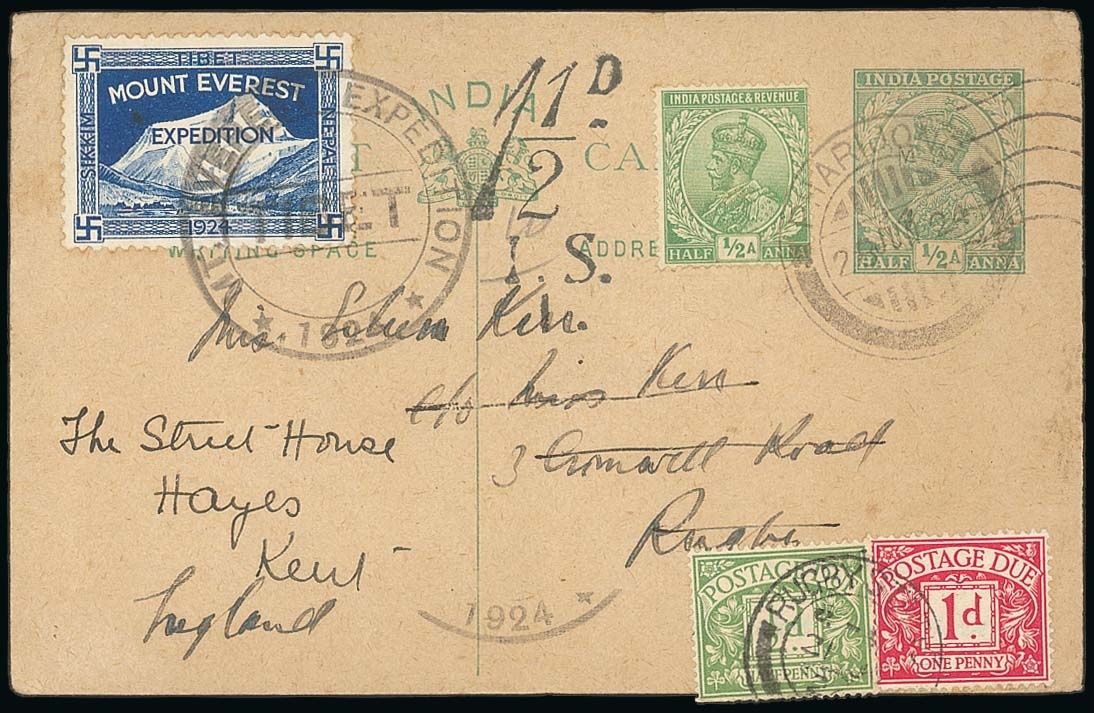 TIBET
MOUNT EVEREST
EXPEDITION
SIKKIM
NEPAL
1924
MT. EVEREST EXPEDITION
TIBET
★ 1924 ★
INDIA
CA
WRITING SPACE
ADDRE
1 1/2 D
I.S.
INDIA POSTAGE & REVENUE
HALF 1/2 A ANNA
INDIA POSTAGE
HALF 1/2 A ANNA
ARIJONG
24
Kerr.
c/o Miss Kerr
3 Cromwell Road
Rugby
The Street House
Hayes
Kent
England
1924 ★
POSTAGE
HALFPENNY
RUGBY
POSTAGE DUE
1d
ONE PENNY